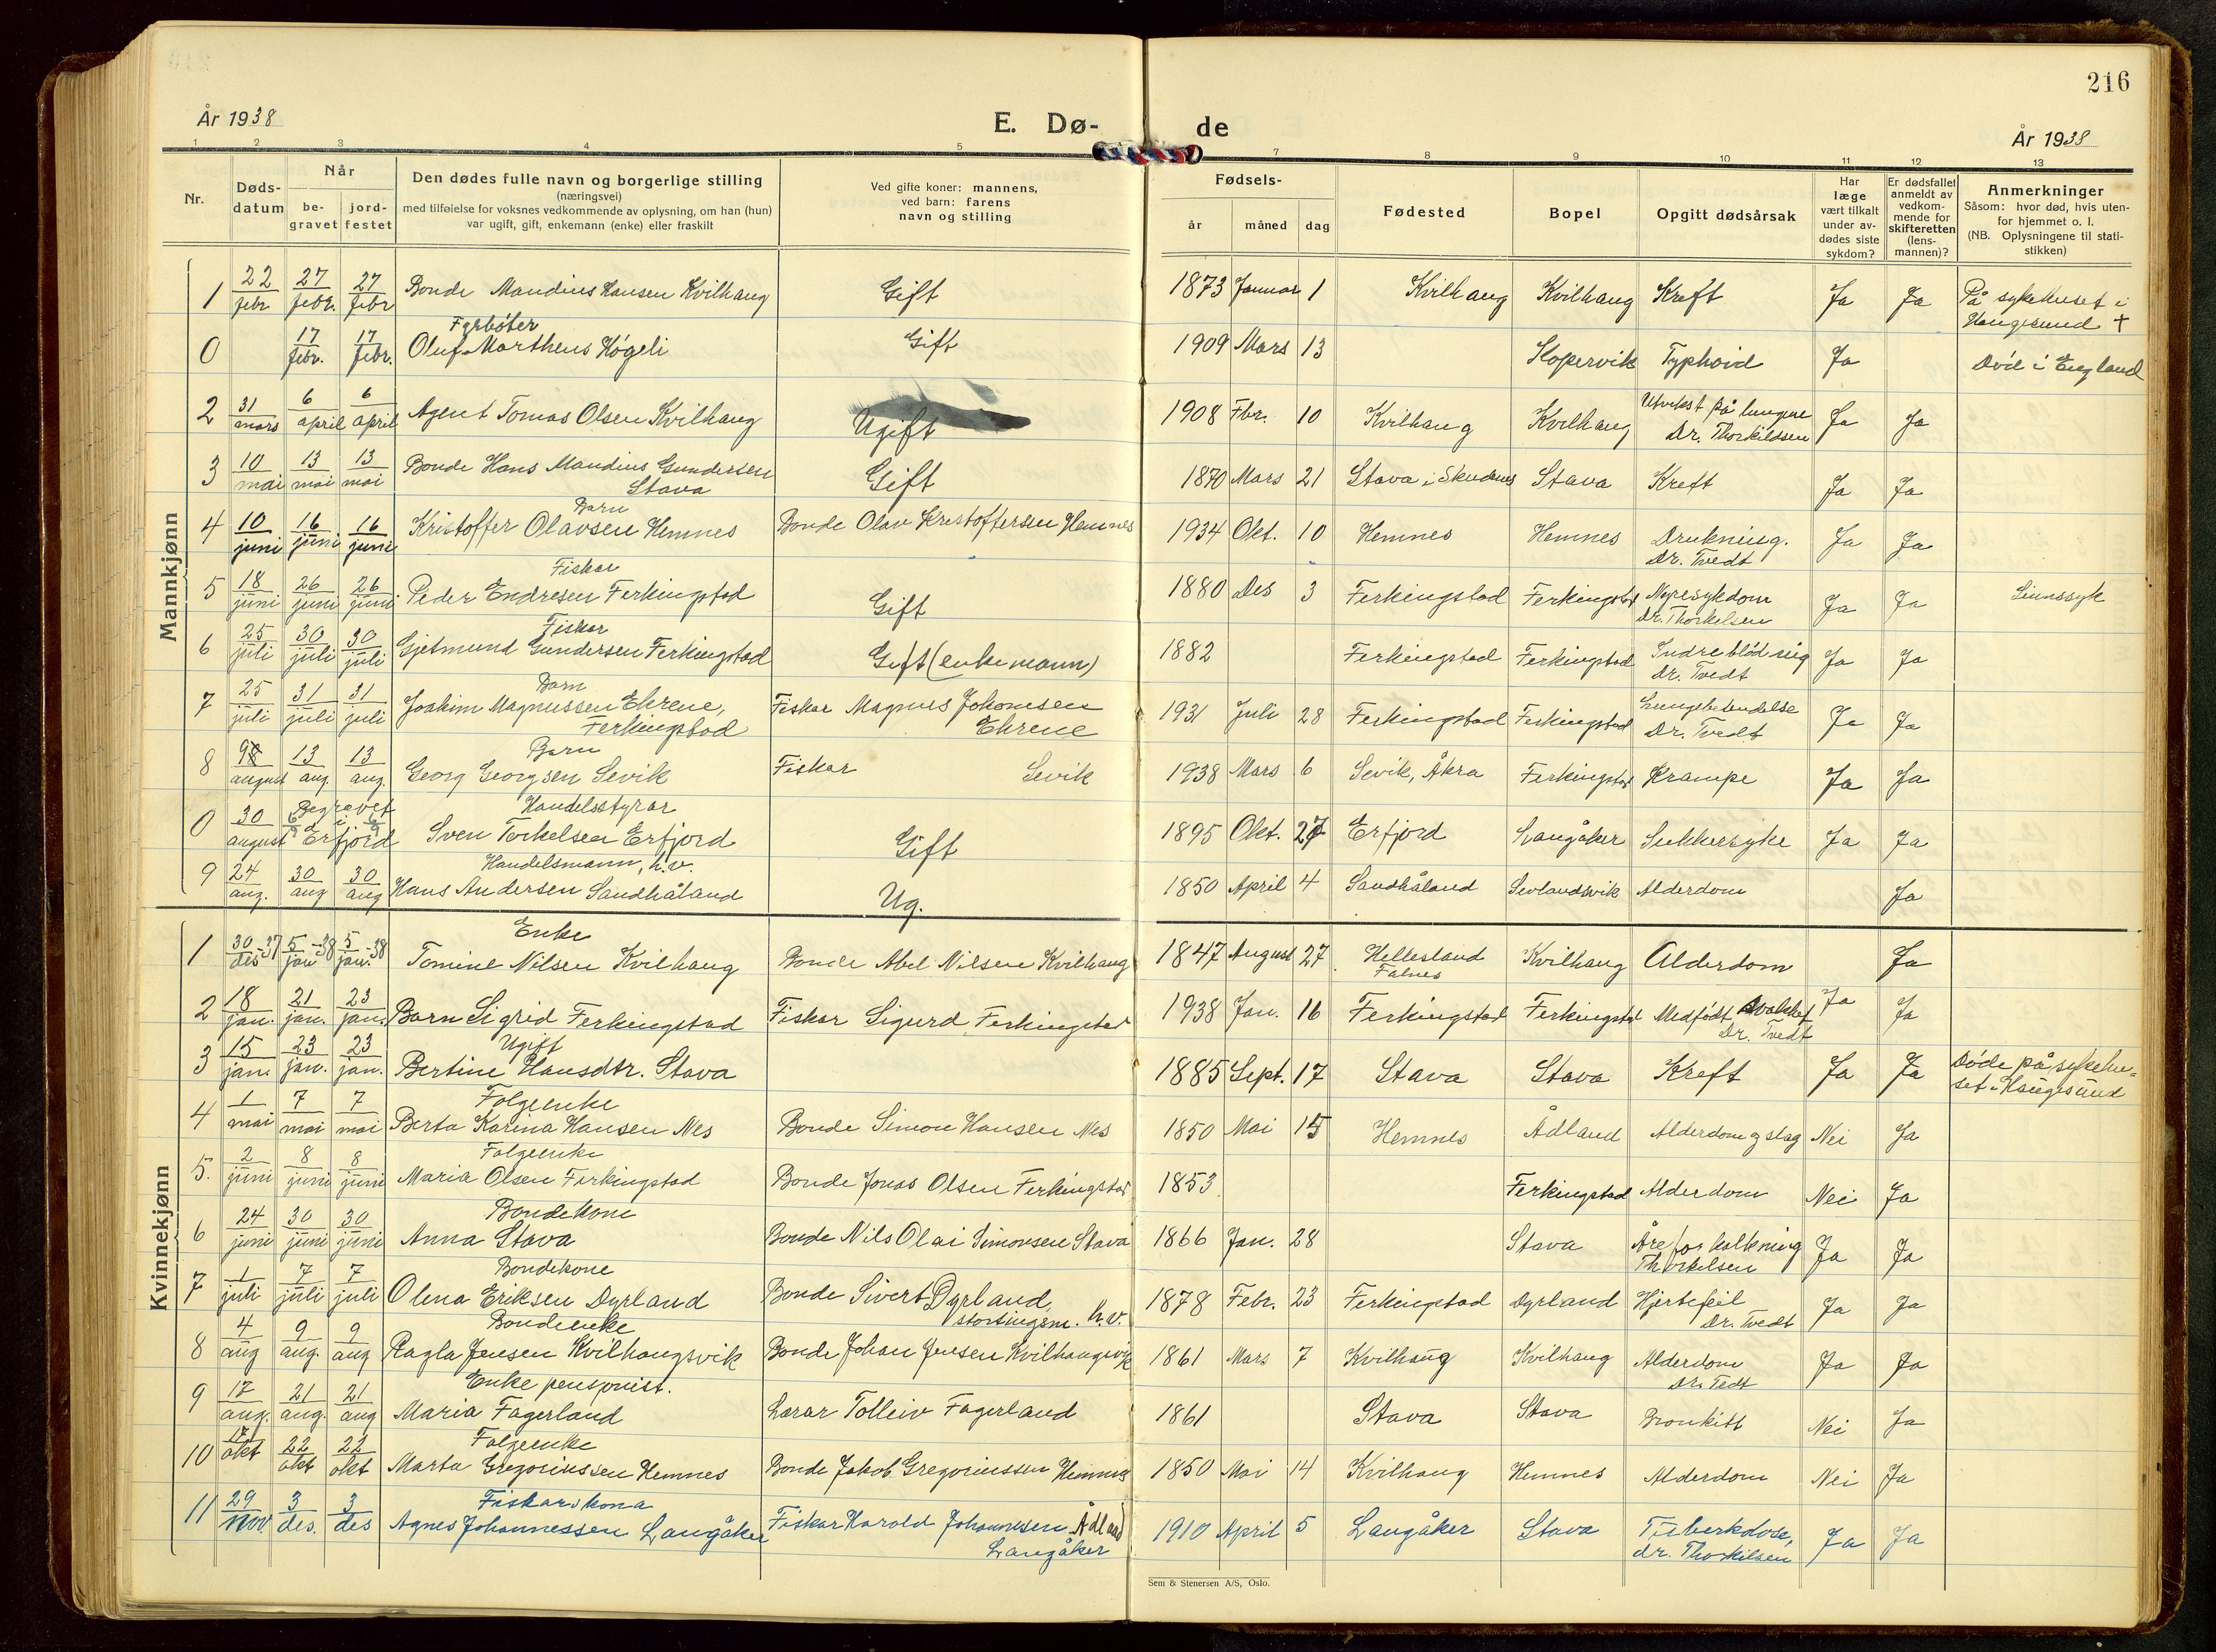 216
År 1938
E. Dø-
de
År 1938
1 2 3 4 5 7 8 9 10 11 12 13
Nr.
Døds-
datum
Når
be-
gravet
jord-
festet
Den dødes fulle navn og borgerlige stilling
(næringsvei)
med tilføielse for voksnes vedkommende av oplysning, om han (hun)
var ugift, gift, enkemann (enke) eller fraskilt
Ved gifte koner: mannens,
ved barn: farens
navn og stilling
Fødsels-
år måned dag
Fødested
Bopel
Opgitt dødsårsak
Har
læge
vært tilkalt
under av-
dødes siste
sykdom?
Er dødsfallet
anmeldt av
vedkom-
mende for
skifteretten
(lens-
mannen)?
Anmerkninger
Såsom: hvor død, hvis uten-
for hjemmet o. l.
(NB. Oplysningene til stati-
stikken)
Mannkjønn
1 22 febr 27 febr. 27 febr Bonde Mandius Hansen Kvilhaug Gift 1873 Januar 1 Kvilhaug Kvilhaug Kreft Ja Ja På sykehuset i
Haugesund †
Fyrbøter
0 17 febr. 17 febr. Oluf Marthens Høgeli Gift 1909 Mars 13 Kopervik Typhoid Ja Død i England
2 31 mars 6 april 6 april Agent Tomas Olsen Kvilhaug Ugift 1908 Fbr. 10 Kvilhaug Kvilhaug Utvekst på lungene
Dr. Thorkildsen Ja Ja
3 10 mai 13 mai 13 mai Bonde Hans Mandius Gundersen
Stava Gift 1870 Mars 21 Stava i Skudenes Stava Kreft Ja Ja
Barn
4 10 juni 16 juni 16 juni Kristoffer Olavsen Hemnes Bonde Olav Kristoffersen Hemnes 1934 Okt. 10 Hemnes Hemnes Drukning.
Dr. Tvedt Ja Ja
Fiskar
5 18 juni 26 juni 26 juni Peder Endresen Ferkingstad Gift 1880 Des 3 Ferkingstad Ferkingstad Nyresykdom
Dr. Thorkelsen Ja Ja Sinnssyk
Fiskar
6 25 juli 30 juli 30 juli Gjetmund Gundersen Ferkingstad Gift (enkemann) 1882 Ferkingstad Ferkingstad Indre blødning
Dr. Tvedt Ja Ja
Barn
7 25 juli 31 juli 31 juli Joakim Magnussen Ehrene,
Ferkingstad Fiskar Magnus Johansen
Ehrene 1931 Juli 28 Ferkingstad Ferkingstad Lungebetendelse
Dr. Tvedt Ja Ja
Barn
8 9 august 13 aug. 13 aug. Georg Georgsen Sevik Fiskar Sevik 1938 Mars 6 Sevik, Åkra Ferkingstad Krampe Ja Ja
Handelsstyrar
0 30 august Begravet
i
Erfjord Sven Torkelsen Erfjord Gift 1895 Okt. 27 Erfjord Langåker Sukkersyke Ja Ja
Handelsmann, h.v.
9 24 aug. 30 aug 30 aug Hans Andersen Sandhåland Ug. 1850 April 4 Sandhåland Sevlandsvik Alderdom Ja
Kvinnekjønn
Enke
1 30 des -37 5 jan -38 5 jan. -38 Tomine Nilsen Kvilhaug Bonde Abel Nilsen Kvilhaug 1847 August 27 Hellesland
Falnes Kvilhaug Alderdom Ja
2 18 jan. 21 jan. 23 jan. Barn Sigrid Ferkingstad Fiskar Sigurd Ferkingstad 1938 Jan. 16 Ferkingstad Ferkingstad Medfødt svakhet
Dr. Tvedt Ja Ja
Ugift
3 15 jan. 23 jan. 23 jan. Bertine Hansdtr. Stava 1885 Sept. 17 Stava Stava Kreft Ja Ja Døde på sykehu=
set i Haugesund
Folgeenke
4 1 mai 7 mai 7 mai Berta Karina Hansen Nes Bonde Simon Hansen Nes 1850 Mai 15 Hemnes Ådland Alderdom og slag Nei Ja
Folgeenke
5. 2 juni 8 juni 8 juni Maria Olsen Ferkingstad Bonde Jonas Olsen Ferkingstad 1853 Ferkingstad Alderdom Nei Ja
Bondekone
6 24 juni 30 juni 30 juni Anna Stava Bonde Nils Olai Simonsen Stava 1866 Jan. 28 Stava Åreforkalkning
Thorkelsen Ja Ja
Bondekone
7 1 juli 7 juli 7 juli Olena Eriksen Dyrland Bonde Sivert Dyrland,
stortingsm. h.v. 1878 Febr. 23 Ferkingstad Dyrland Hjertefeil
Dr. Tvedt Ja Ja
Bondeenke
8 4 aug 9 aug. 9 aug Ragla Jensen Kvilhaugsvik Bonde Johan Jensen Kvilhaugsvik 1861 Mars 7 Kvilhaug Kvilhaug Alderdom
Dr. Tedt Ja Ja
Enke pensjonist.
9 17 aug. 21 aug. 21 aug Maria Fagerland Lærar Tolleiv Fagerland 1861 Stava Stava Bronkitt Nei Ja
Folgeenke
10 17 okt 22 okt 22 okt Marta Gregoriussen Hemnes Bonde Jakob Gregoriussen Hemnes 1850 Mai 14 Kvilhaug Hemnes Alderdom Nei Ja
Fiskarskona
11 29 nov. 3 des. 3 des Agnes Johannessen Langåker Fiskar Harald Johannesen Ådland
Langåker 1910 April 5 Langåker Stava Tuberkulose,
dr. Thorkilsen Ja Ja
Sem & Stenersen A/S, Oslo.